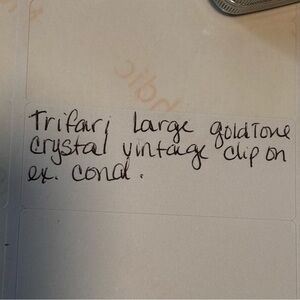 Trifari Large goldTone
crystal vintage clip on
ex. cond.